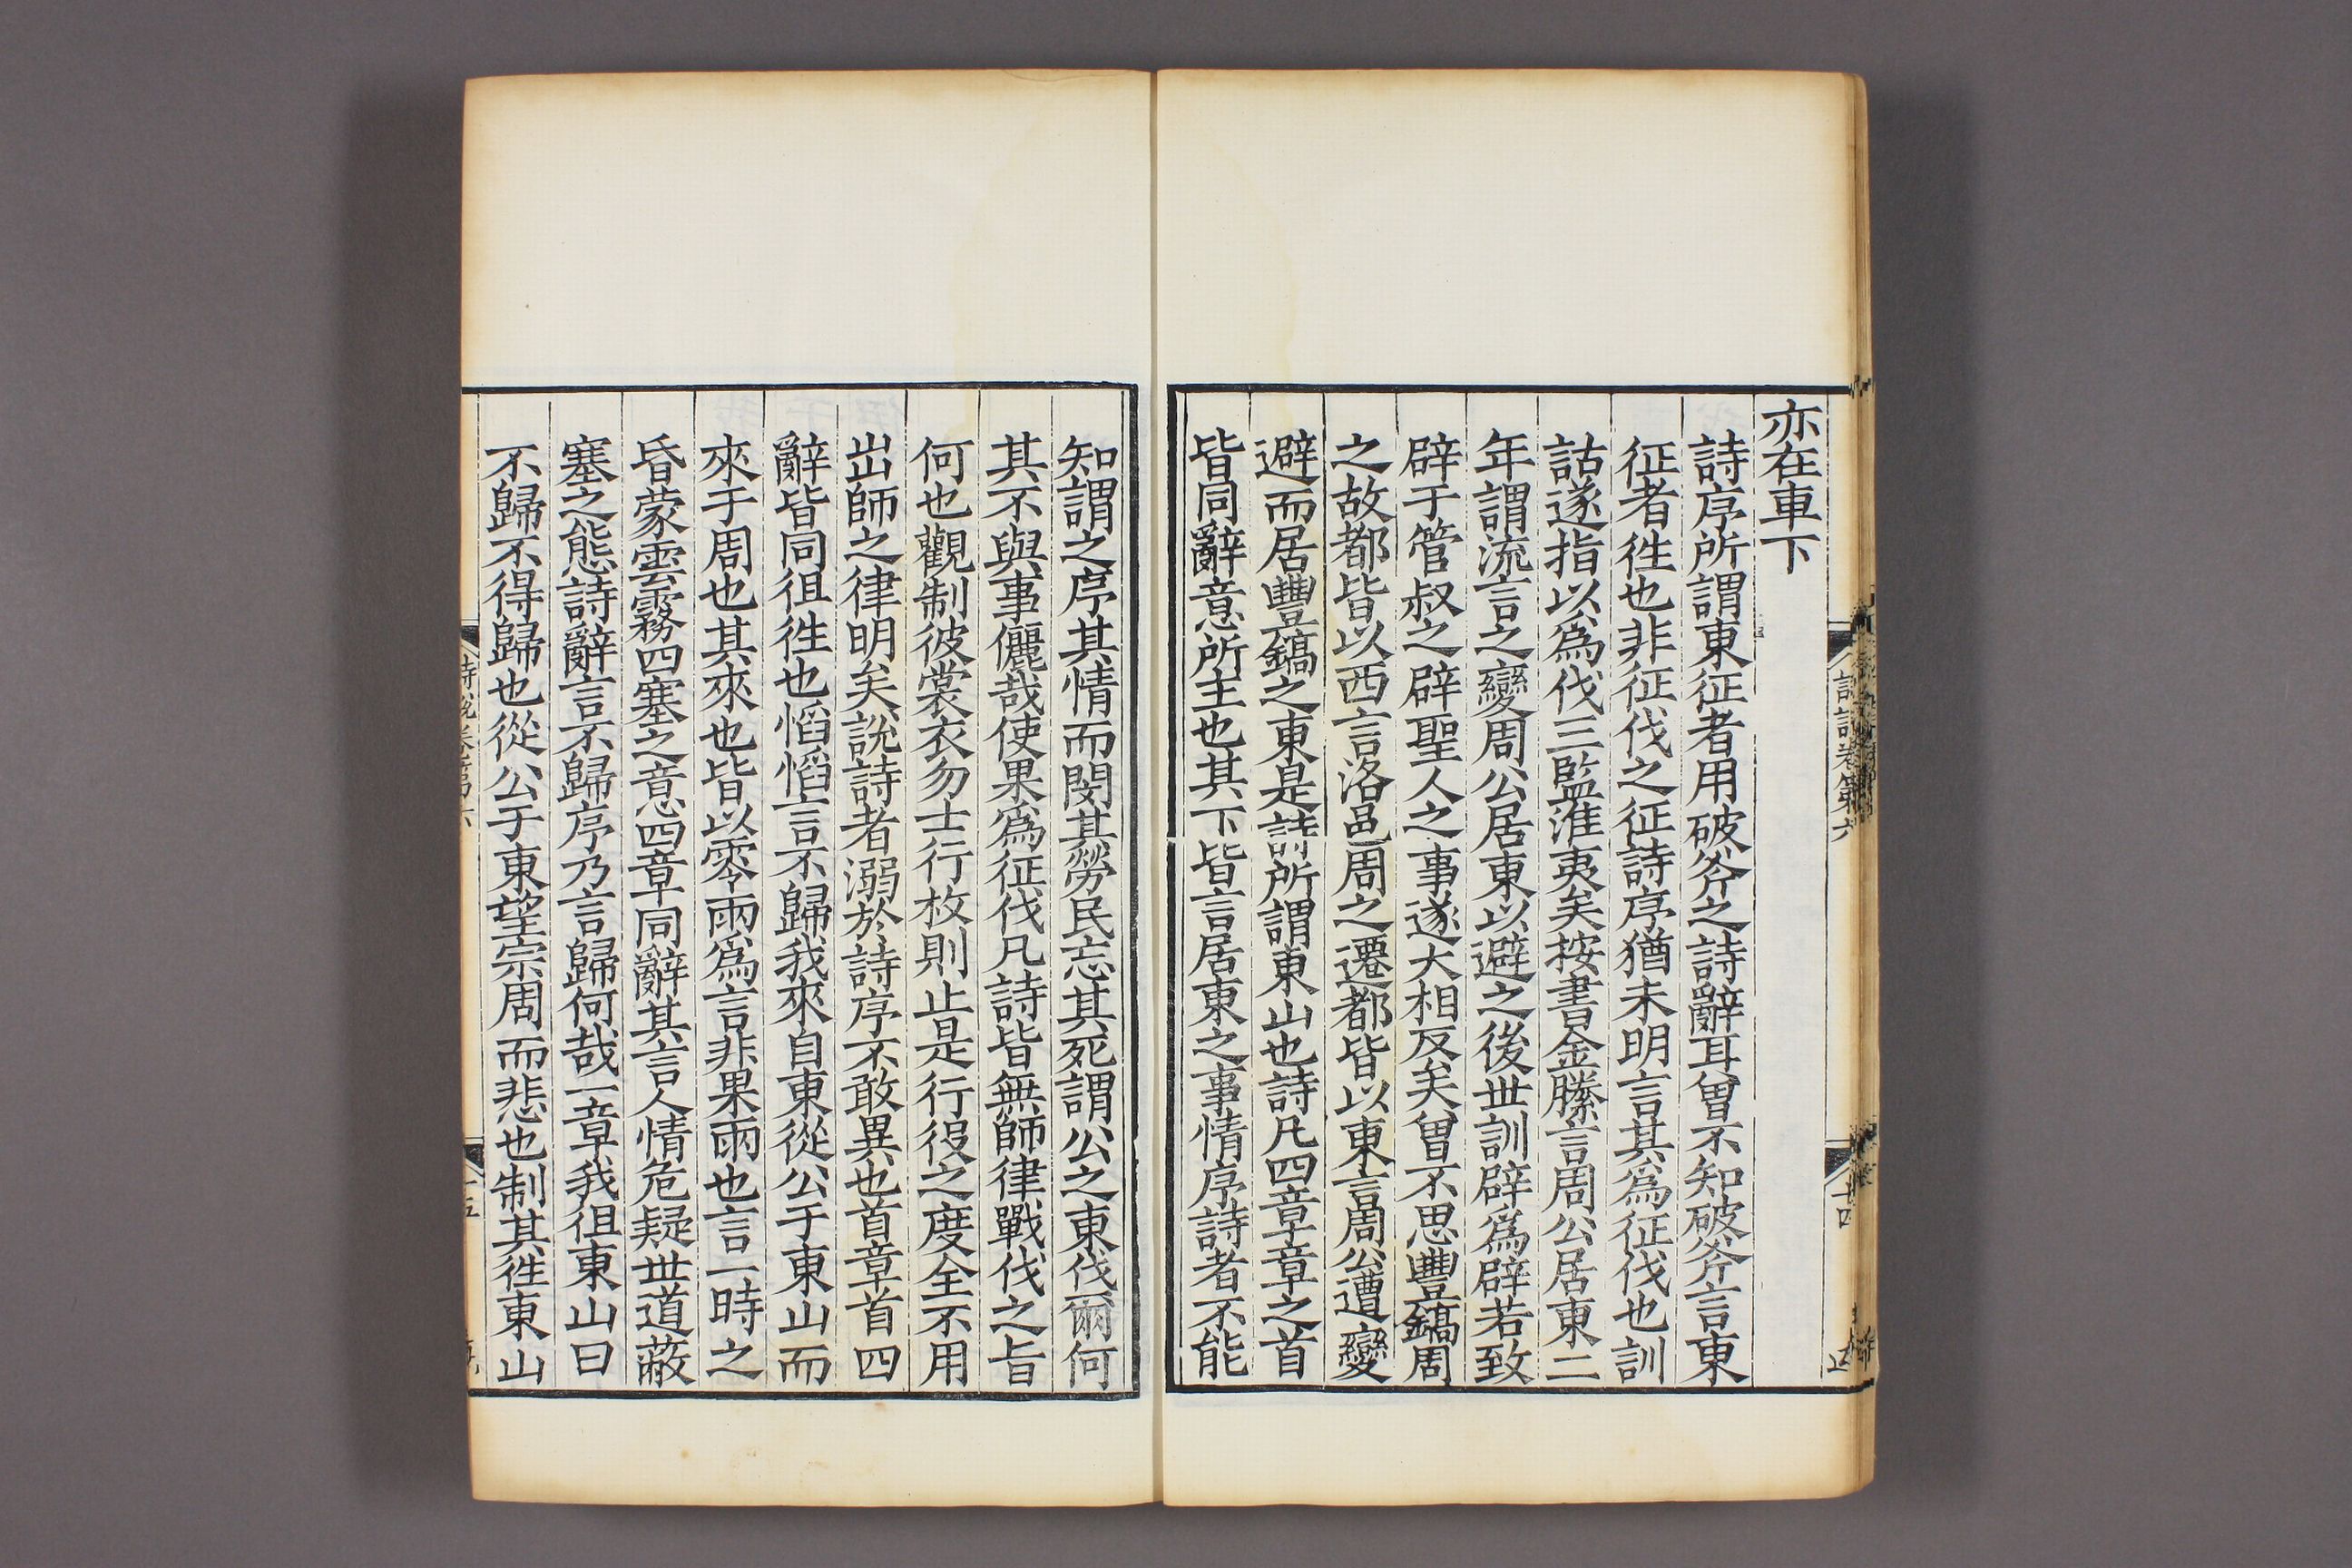 亦在車下
詩序所謂東征者用破斧之詩辭耳曾不知破斧言東
征者徃也非征伐之征詩序猶未明言其爲征伐也訓
詁遂指以爲伐三監淮夷矣按書金縢言周公居東二
年謂流言之變周公居東以避之後世訓辟爲辟若致
辟于管叔之辟聖人之事遂大相反矣曾不思豐鎬周
之故都皆以西言洛邑周之遷都皆以東言周公遭變
避而居豐鎬之東是詩所謂東山也詩凡四章章之首
皆同辭意所主也其下皆言居東之事情序詩者不能
詩說卷第六
十四
知謂之序其情而閔其勞民忘其死謂公之東伐爾何
其不與事儷哉使果爲征伐凡詩皆無師律戰伐之旨
何也觀制彼裳衣勿士行枚則止是行役之度全不用
出師之律明矣說詩者溺於詩序不敢異也首章首四
辭皆同徂徃也慆慆言不歸我來自東從公于東山而
來于周也其來也皆以零雨爲言非果雨也言一時之
昏蒙雲霧四塞之意四章同辭其言人情危疑世道蔽
塞之態詩辭言不歸序乃言歸何哉一章我徂東山曰
不歸不得歸也從公于東望宗周而悲也制其徃東山
詩說卷第六
十五